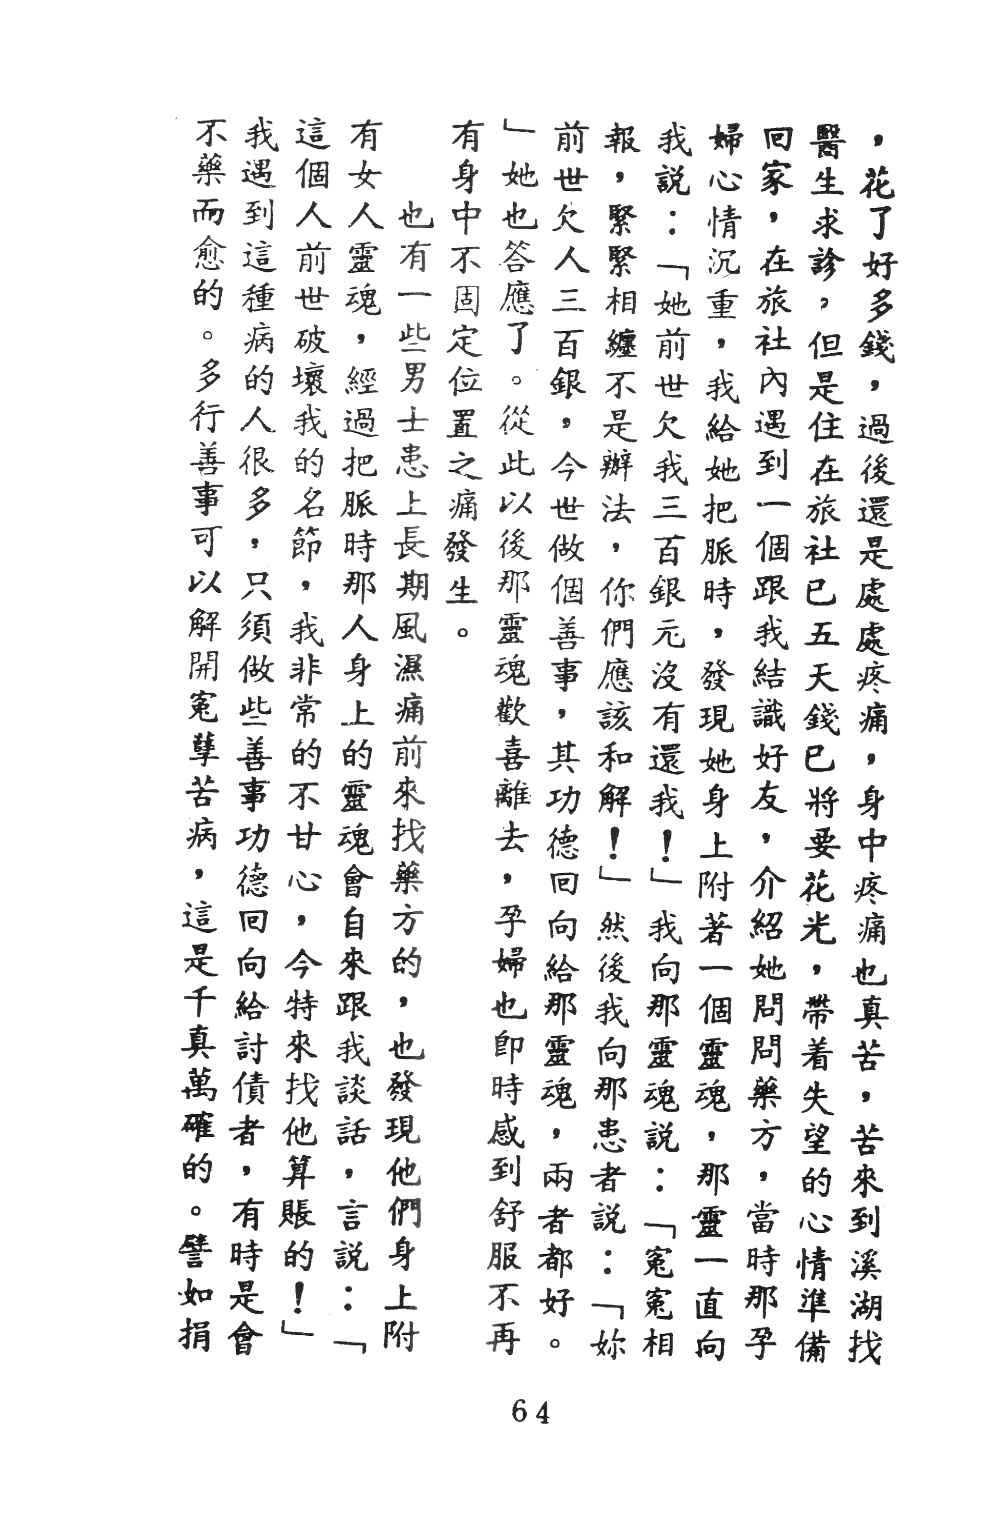 ，花了好多錢，過後還是處處疼痛，身中疼痛也真苦，苦來到溪湖找
醫生求診，但是住在旅社已五天錢已將要花光，帶着失望的心情準備
回家，在旅社內遇到一個跟我結識好友，介紹她問問藥方，當時那孕
婦心情沉重，我給她把脈時，發現她身上附著一個靈魂，那靈一直向
我説：「她前世欠我三百銀元沒有還我！」我向那靈魂説：「冤冤相
報，緊緊相纏不是辦法，你們應該和解！」然後我向那患者説：「妳
前世欠人三百銀，今世做個善事，其功德回向給那靈魂，兩者都好。
」她也答應了。從此以後那靈魂歡喜離去，孕婦也即時感到舒服不再
有身中不固定位置之痛發生。
也有一些男士患上長期風濕痛前來找藥方的，也發現他們身上附
有女人靈魂，經過把脈時那人身上的靈魂會自來跟我談話，言説：「
這個人前世破壞我的名節，我非常的不甘心，今特來找他算賬的！」
我遇到這種病的人很多，只須做些善事功德回向給討債者，有時是會
不藥而愈的。多行善事可以解開冤孽苦病，這是千真萬確的。譬如捐
64